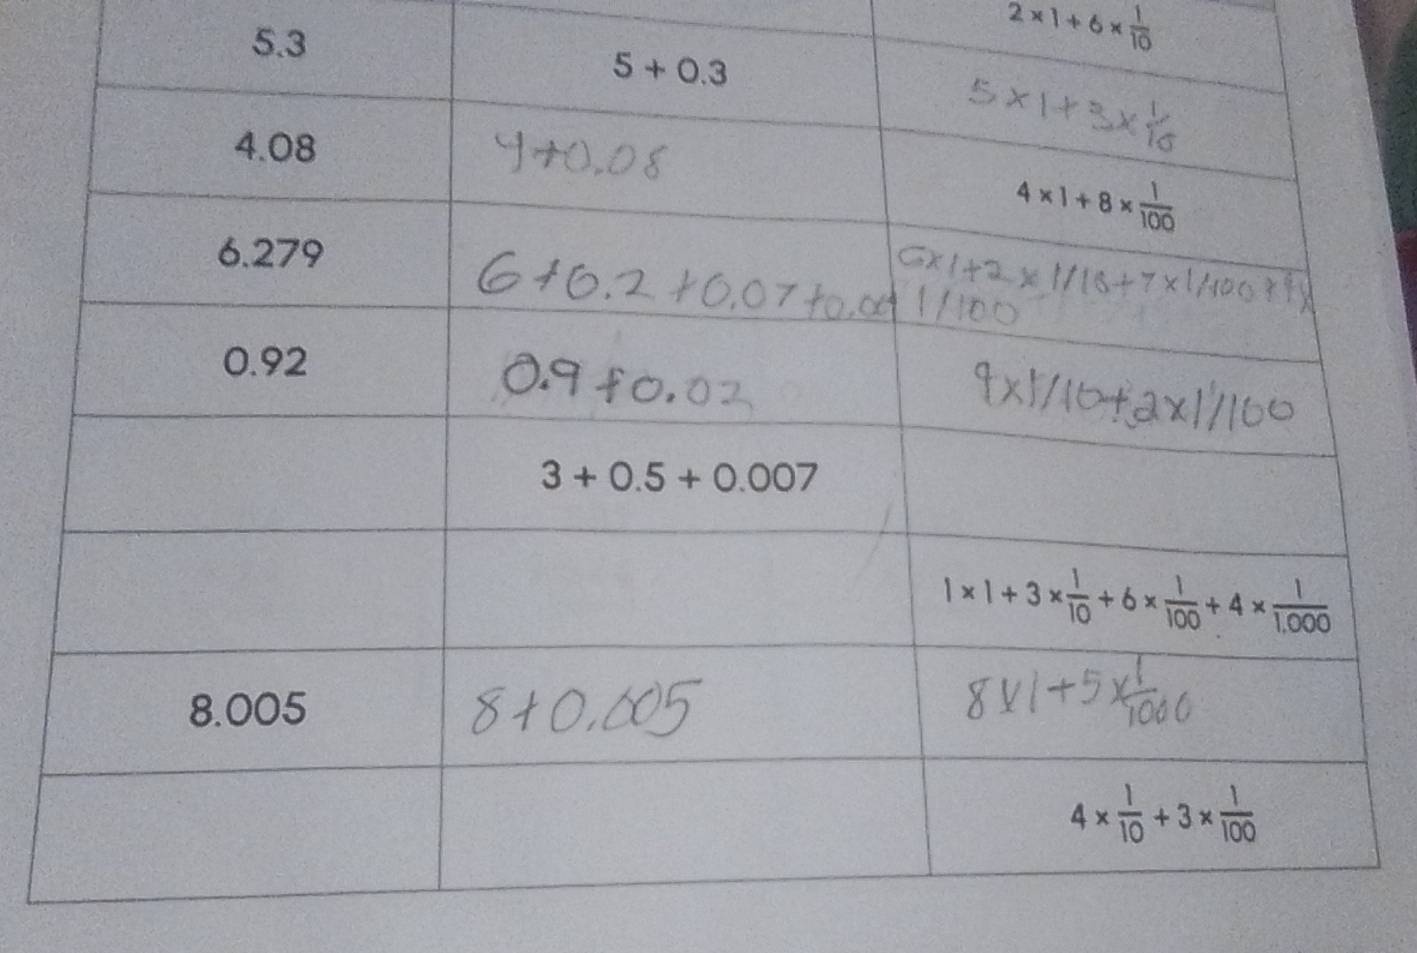 2 × 1 + 6 × 1/10
5.3 5 + 0.3 5 × 1 + 3 × 1/10
4.08 4+0.08 4 × 1 + 8 × 1/100
6.279 6+0.2+0.07+0.00 6×1+2×1/10+7×1/100+9×
1/100
0.92 0.9+0.02 9×1/10+2×1/100
3 + 0.5 + 0.007
1 × 1 + 3 × 1/10 + 6 × 1/100 + 4 × 1/1,000
8.005 8+0.005 8×1+5×1/1000
4 × 1/10 + 3 × 1/100